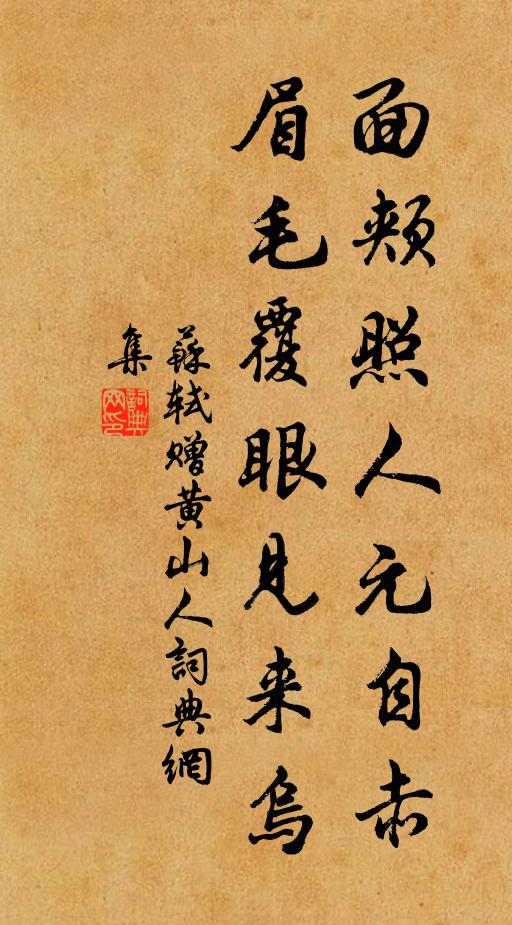 面頰照人元自赤
眉毛覆眼見来烏
蘇軾贈黄山人詞典網
集
詞典
网印